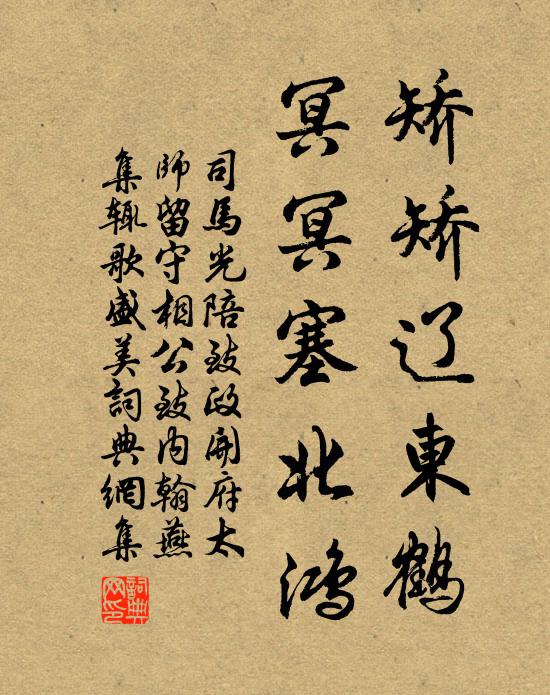 矫矫辽東鹤
冥冥塞北鸿
司馬光陪致政開府太
師留守相公致内翰燕
集辄歌盛美詞典網集
詞典網印